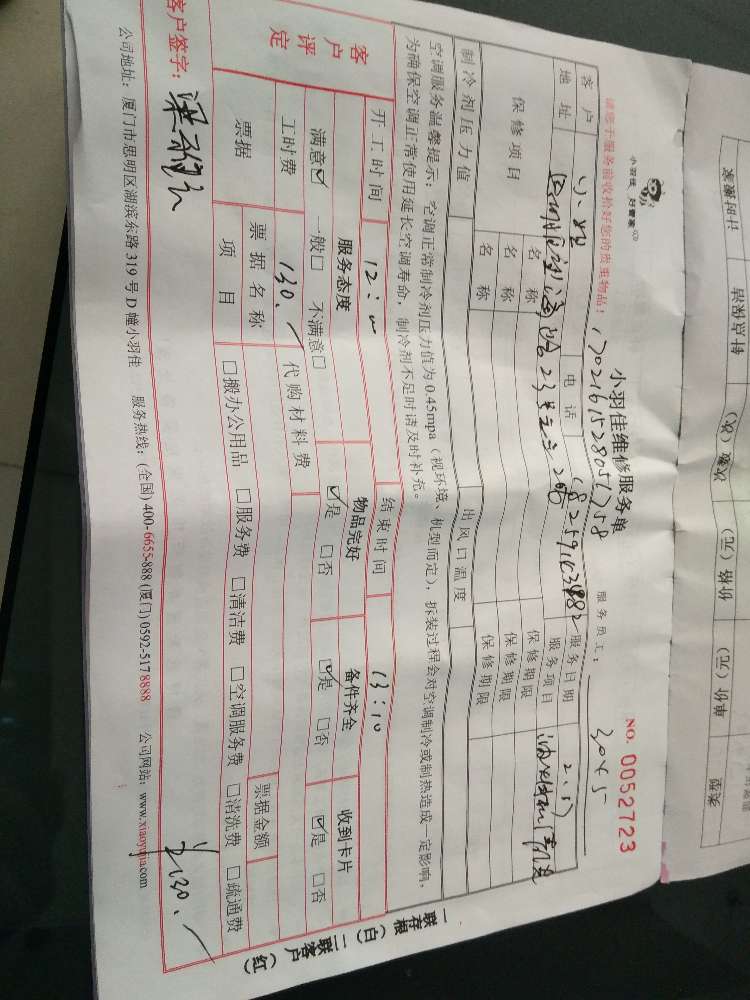 小羽佳 好管家
小羽佳维修服务单
NO. 0052723
请您于服务前收拾好您的贵重物品！
1702161528051758
服务员工：
3045
客户
电话
18259103982
服务日期
2.17
地址
23号之二
服务项目
油烟机清洗
保修项目
名称
保修期限
名称
保修期限
名称
保修期限
制冷剂压力值
出风口温度
空调服务温馨提示：空调正常制冷剂压力值为0.45mpa（视环境、机型而定），拆装过程会对空调制冷或制热造成一定影响，
为确保空调正常使用延长空调寿命，制冷剂不足时请及时补充。
开工时间
12:00
结束时间
13:10
客户评定
服务态度
物品完好
备件齐全
收到卡片
满意☑ 一般□ 不满意□
☑是 □否
☑是 □否
☑是 □否
工时费
130.
代购材料费
票据
票据名称
票据金额
项目
□搬办公用品 □服务费 □清洁费 □空调服务费 □清洗费 □疏通费
客户签字：
¥130.
公司地址：厦门市思明区湖滨东路319号D幢小羽佳 服务热线：(全国)400-6655-888 (厦门)0592-5178888 公司网站：www.xiaoyujia.com
一联存根（白）二联客户（红）
次数（次）
价格（元）
单价（元）